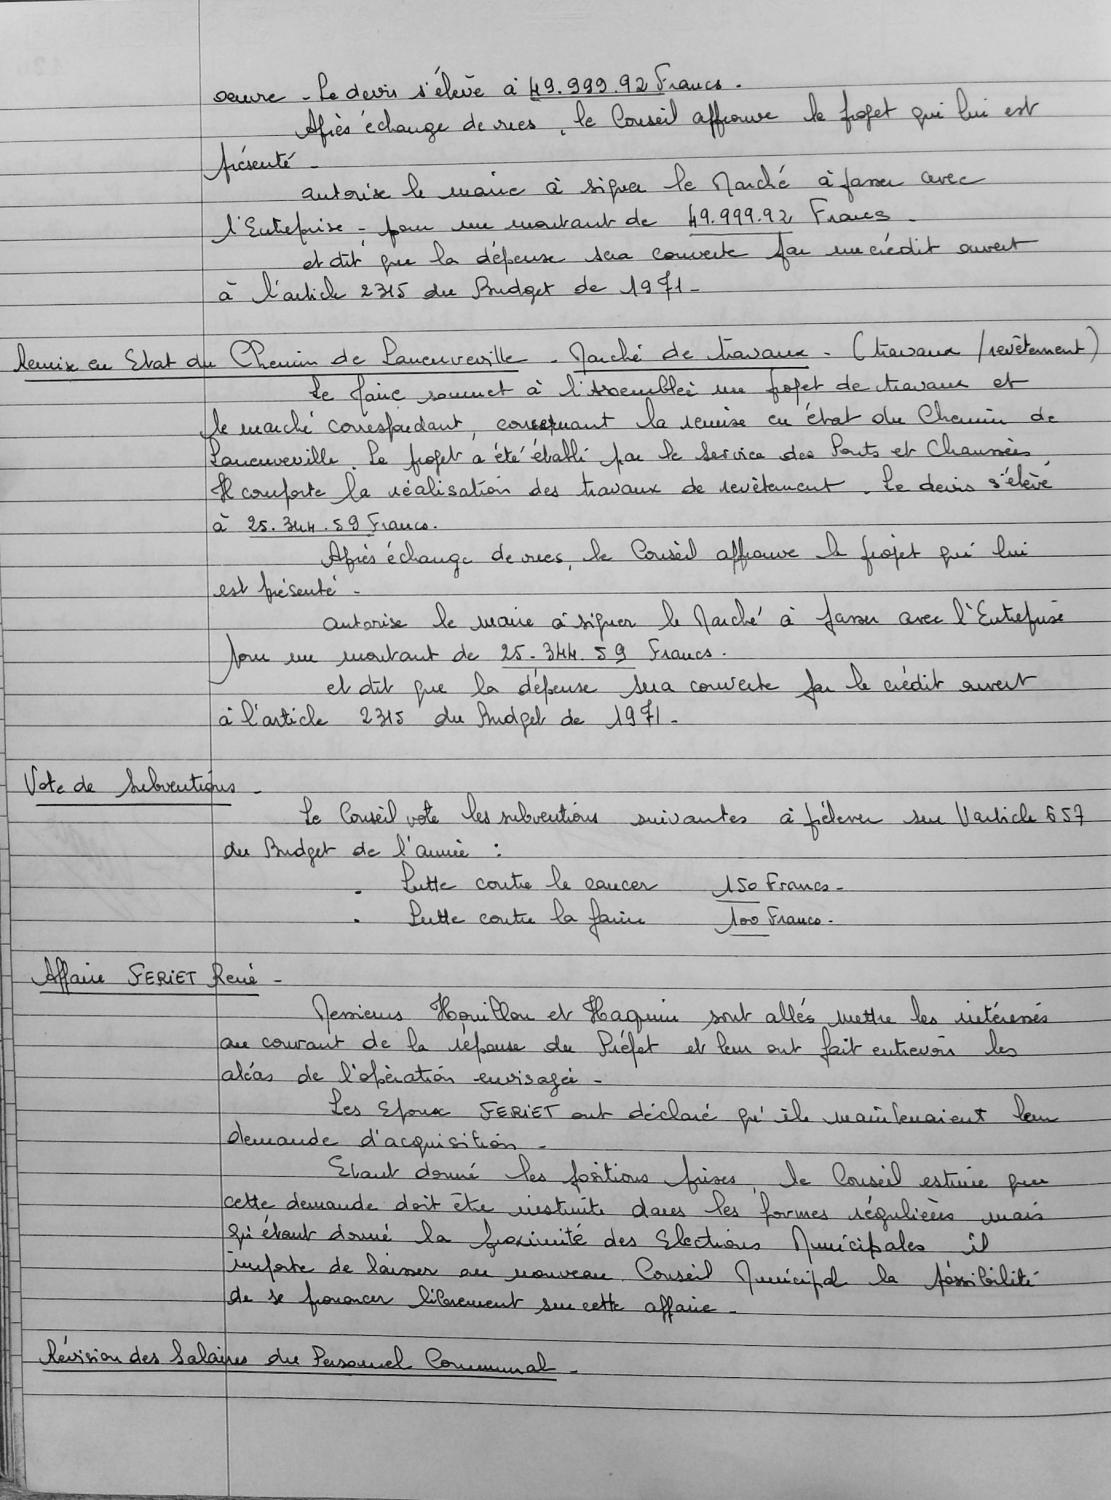 oeuvre - Le devis s'élève à 49.999.92 Francs.
Après échange de vues, le Conseil approuve le projet qui lui est
présenté -
autorise le maire à signer le Marché à passer avec
l'Entreprise - pour un montant de 49.999.92 Francs -
et dit que la dépense sera couverte par un crédit ouvert
à l'article 2315 du Budget de 1971 -
Remise en Etat du Chemin de Laneuveville - Marché de travaux - (travaux / revêtement)
Le Maire soumet à l'Assemblée un projet de travaux et
le marché correspondant, concernant la remise en état du Chemin de
Laneuveville. Le projet a été établi par le Service des Ponts et Chaussées
Il comporte la réalisation des travaux de revêtement. Le devis s'élève
à 25.344.59 Francs.
Après échange de vues, le Conseil approuve le projet qui lui
est présenté -
autorise le maire à signer le Marché à passer avec l'Entreprise
pour un montant de 25.344.59 Francs.
et dit que la dépense sera couverte par le crédit ouvert
à l'article 2315 du Budget de 1971 -
Vote de Subventions -
Le Conseil vote les subventions suivantes à prélever sur l'article 657
du Budget de l'année :
. Lutte contre le cancer 150 Francs -
. Lutte contre la faim 100 Francs -
Affaire FERIET René -
Messieurs Houillon et Haquin sont allés mettre les intéressés
au courant de la réponse du Préfet et leur ont fait entrevoir les
aléas de l'opération envisagée -
Les Epoux FERIET ont déclaré qu'ils maintenaient leur
demande d'acquisition -
Etant donné les positions prises, le Conseil estime que
cette demande doit être instruite dans les formes régulières mais
qu'étant donné la proximité des Elections Municipales il
importe de laisser au nouveau Conseil Municipal la possibilité
de se prononcer librement sur cette affaire -
Révision des Salaires du Personnel Communal -